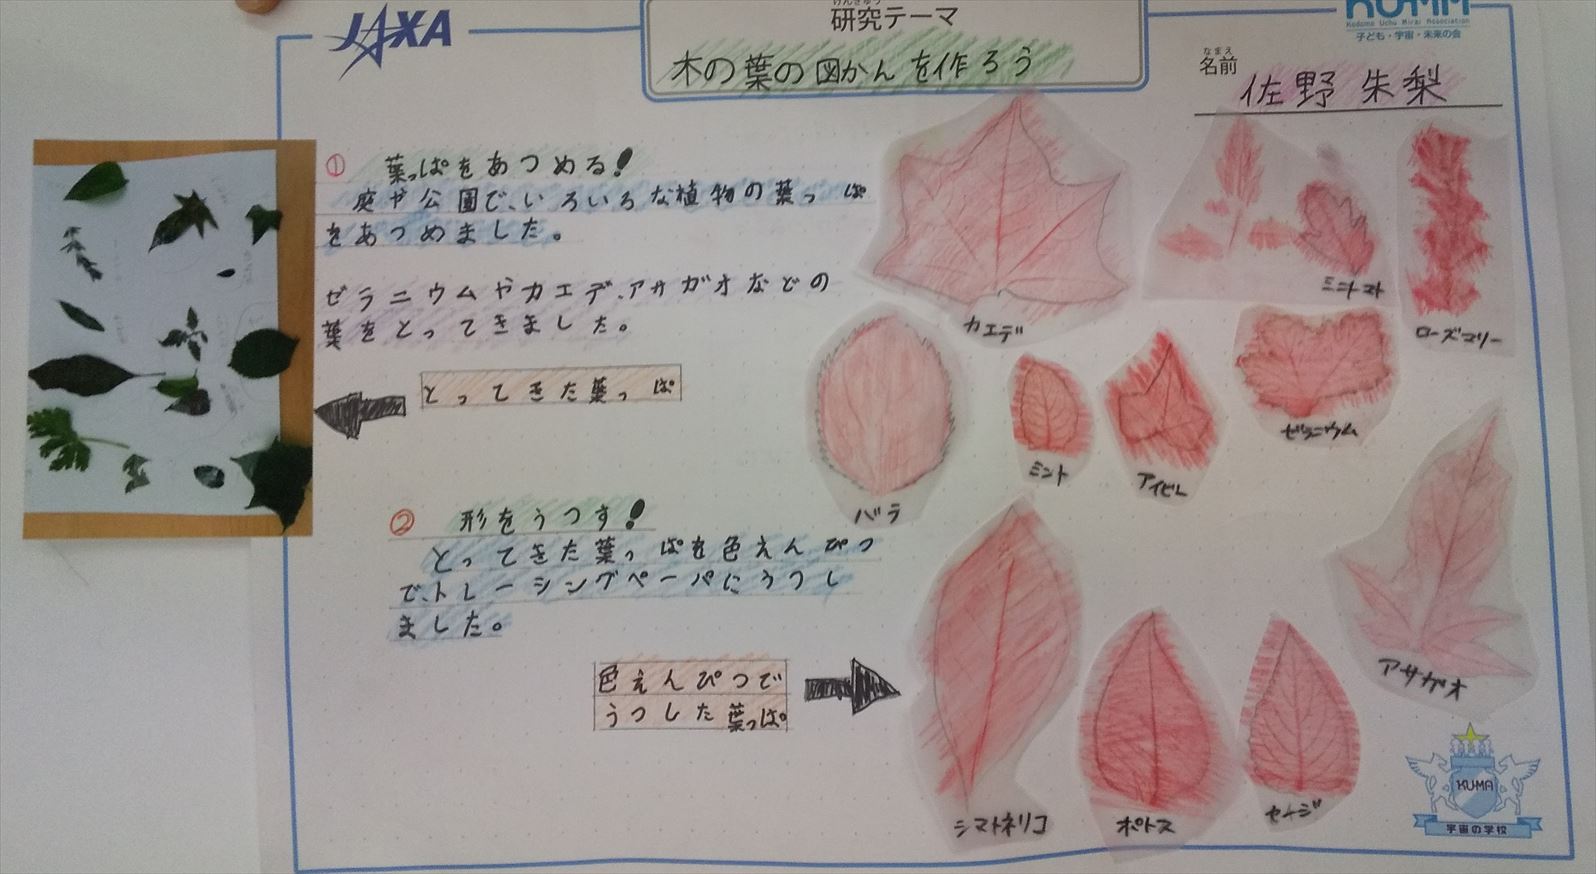 JAXA
けんきゅう
研究テーマ
木の葉の図かんを作ろう
KUMA
Kodomo Uchu Mirai Association
子ども・宇宙・未来の会
なまえ
名前
佐野 朱梨
① 葉っぱをあつめる!
庭や公園で、いろいろな植物の葉っぱ
をあつめました。
ゼラニウムやカエデ、アサガオなどの
葉をとってきました。
とってきた葉っぱ
② 形をうつす!
とってきた葉っぱを色えんぴつ
で、トレーシングペーパにうつし
ました。
色えんぴつで
うつした葉っぱ
カエデ
ミニトマト
ローズマリー
バラ
ミント
アイビー
ゼラニウム
アサガオ
シマトネリコ
ポトス
セージ
KUMA
宇宙の学校